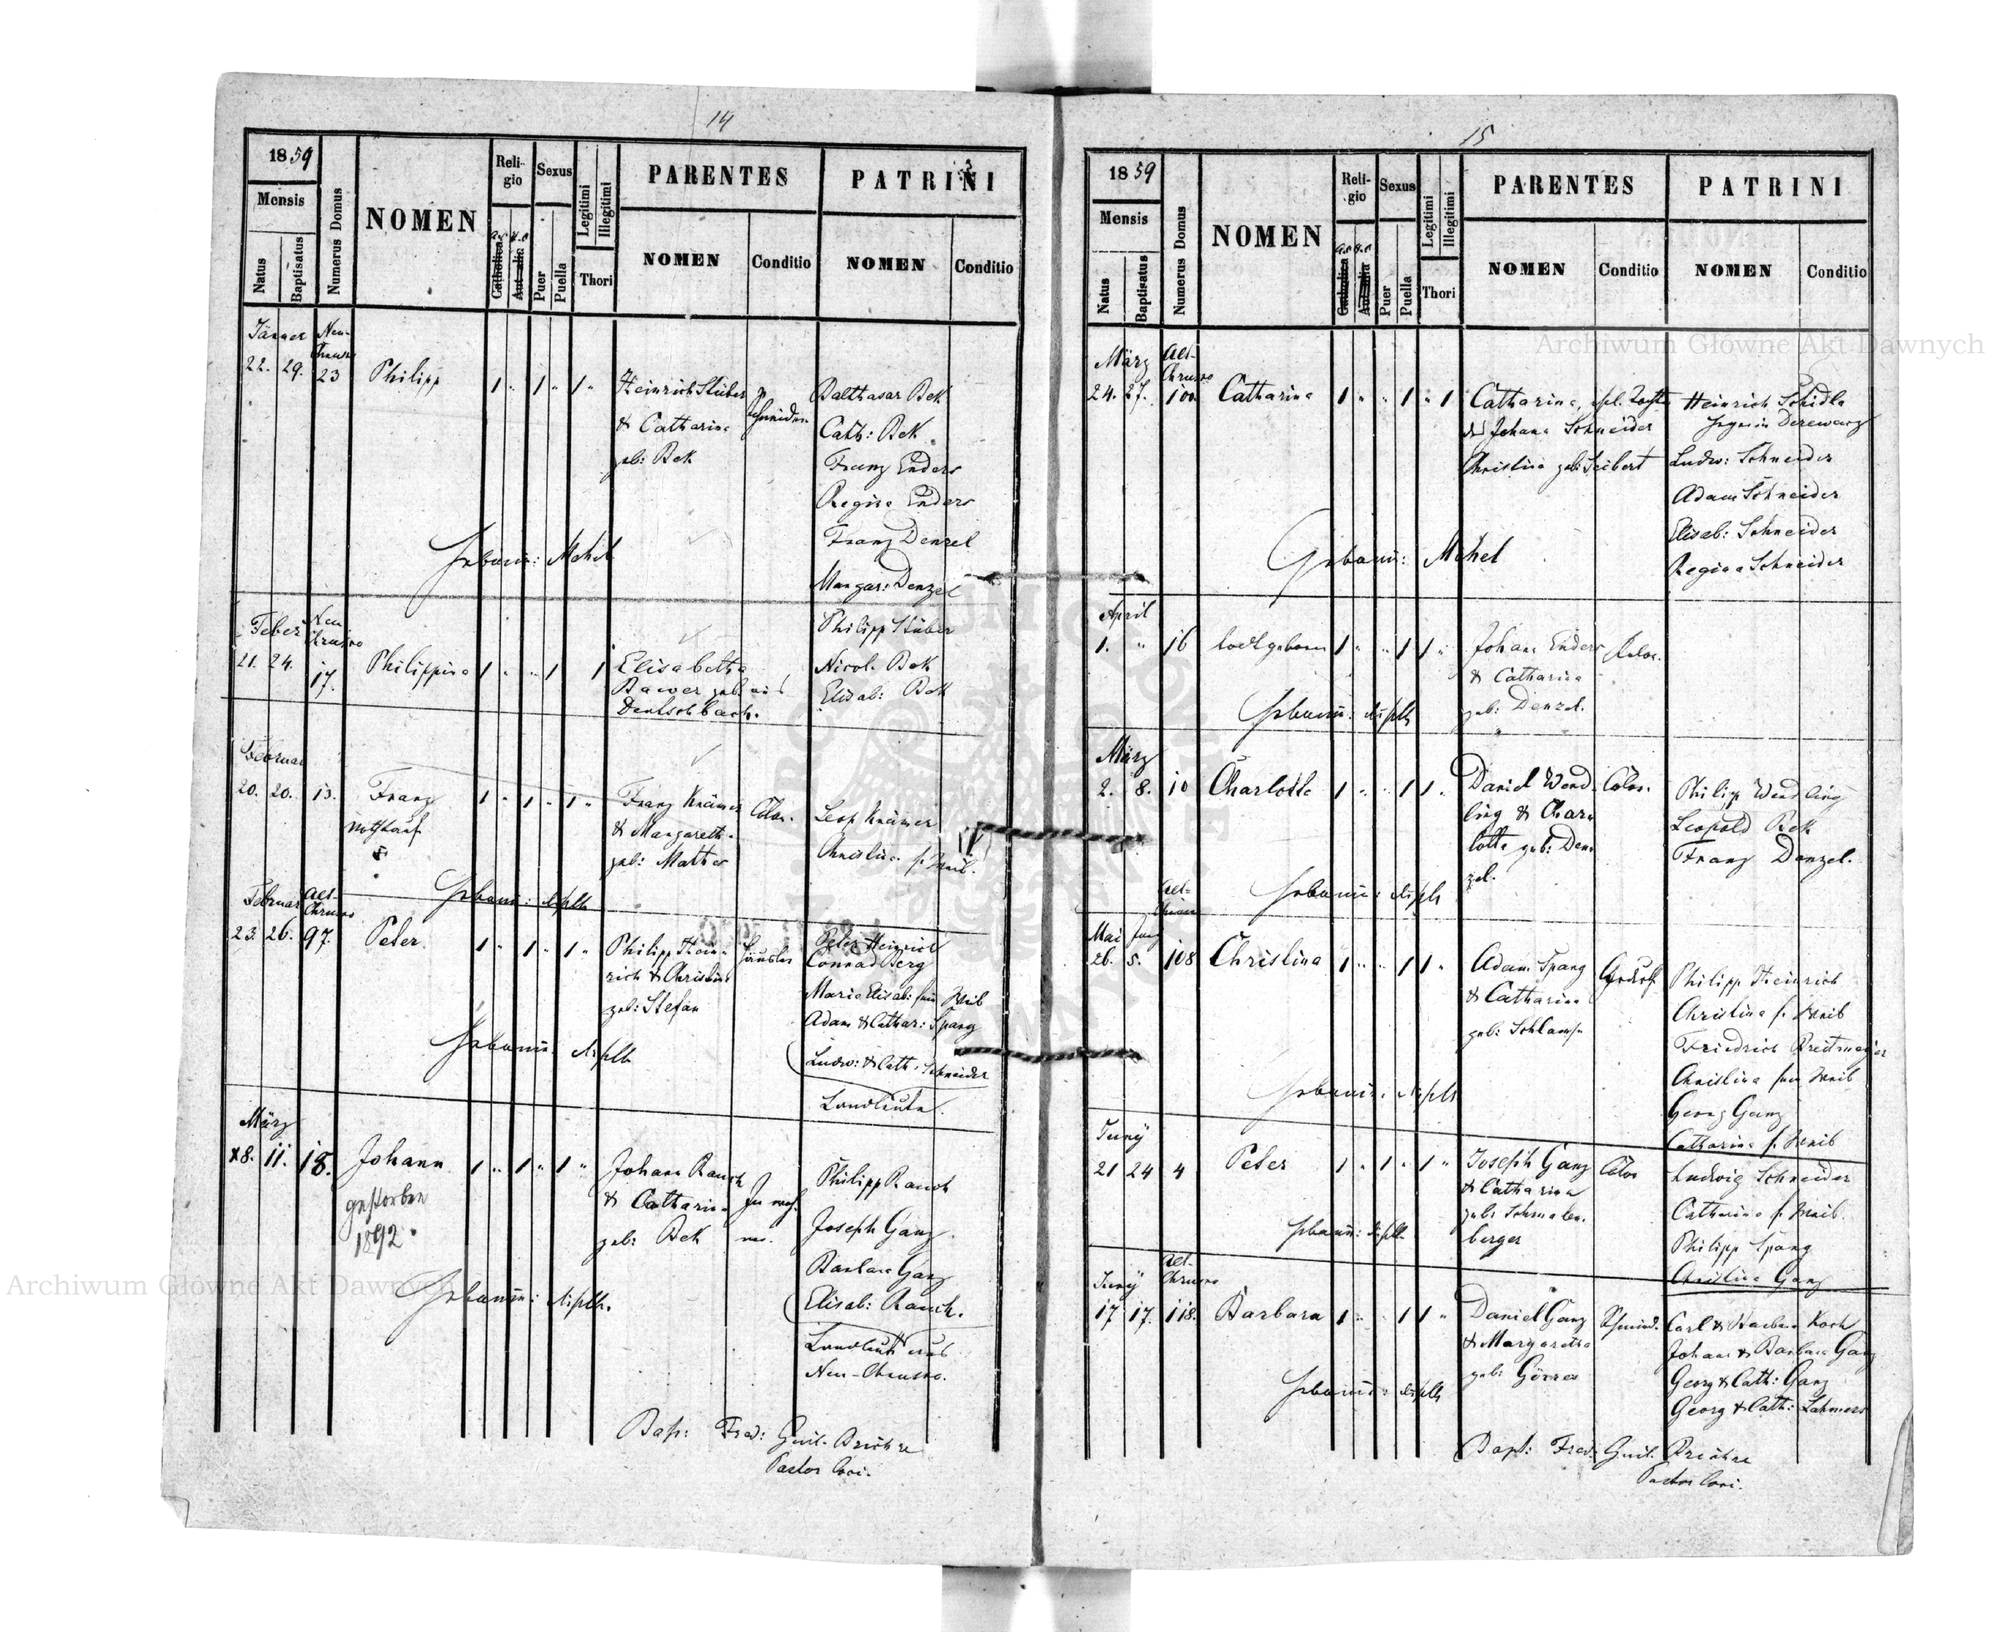 14
1859
Mensis
Natus
Baptisatus
Numerus Domus
NOMEN
Religio
Catholica
Aut alia
Sexus
Puer
Puella
Legitimi
Illegitimi
Thori
PARENTES
NOMEN
Conditio
PATRINI
NOMEN
Conditio
Jänner Neu-
22. 29. 23 Philipp 1 " 1 " 1 " Heinrich Stüber
& Catharina
geb: Bek
Balthasar Bek
Cath: Bek
Franz Enders
Regina Enders
Franz Denzel
Margar: Denzel
Hebamm: Mohel
Feber Neu
Chrusno
21. 24. 17. Philippina 1 " " 1 1 Elisabetha
Bawer geb: aus
Deutschbach.
Philipp Stüber
Nicol. Bek
Elisab: Bek
Februar
20. 20. 13. Franz 1 " 1 " 1 " Franz Krämer Colon.
Nothtauf
& Margareth.
geb: Mather
Leop Krämer
Christina s. Weib.
Hebamm: dieselbe
Februar Alt-
Chrusno
23. 26. 97. Peter. 1 " 1 " 1 " Philipp Hein-
rich & Christina
geb: Stefan
Häusler
Peter Heinrich
Conrad Berg
Maria Elisab: sein Weib
Adam & Cathar: Spang
Ludw: & Cath: Schneider
Landleute.
Hebamm: dieselbe
März
8. 11. 18. Johann 1 " 1 " 1 " Johann Rauch
gestorben
1892.
& Catharina
geb: Bek
Philipp Rauch
Joseph Ganz
Barbara Ganz
Elisab: Rauch.
Landleute aus
Neu-Chrusno.
Hebamm: dieselbe.
Bap: Fred: Guil.
Pastor loci.
15
1859
Mensis
Natus
Baptisatus
Numerus Domus
NOMEN
Religio
Catholica
Aut alia
Sexus
Puer
Puella
Legitimi
Illegitimi
Thori
PARENTES
NOMEN
Conditio
PATRINI
NOMEN
Conditio
März Alt-
Chrusno
24. 27. 100 Catharina 1 " " 1 " 1 Catharina,
des Johann Schneider
Christina geb: Seibert
Heinrich Schidla
Ludw: Schneider
Adam Schneider
Elisab: Schneider
Regina Schneider
Hebamm: Mohel
April
1. " 16 todtgeboren 1 " " 1 1 " Johann Enders Colon.
& Catharina
geb: Denzel.
Hebamm: dieselbe
März
2. 8. 10 Charlotte 1 " " 1 1 " Daniel Wend- Colon.
ling & Char-
lotte geb: Den-
zel.
Philipp Wendling
Leopold Bek
Franz Denzel.
Hebamm: dieselbe
Mai Juny
Alt-
26. 5. 108 Christina 1 " " 1 1 " Adam Spang
& Catharina
geb: Schlamp
Philipp Heinrich
Christina s. Weib
Friedrich Breitmayer
Christina sein Weib
Georg Ganz
Catharina s. Weib
Hebamm: dieselbe
Juny
21 24 4 Peter 1 " 1 " 1 " Joseph Ganz Colon
& Catharina
geb: Schmalen-
berger
Ludwig Schneider
Catharina s. Weib.
Philipp Spang
Christina Ganz
Hebamm: dieselbe
Juny Alt-
Chrusno
17 17. 118. Barbara 1 " " 1 1 " Daniel Ganz
& Margaretha
geb: Görres
Carl & Barbara Koch
Johann & Barbara Ganz
Georg & Cath: Ganz
Georg & Cath: Lahmers
Hebamm: dieselbe
Bapt: Fred: Guil.
Pastor loci.
Archiwum Główne Akt Dawnych
Archiwum Główne Akt Dawnych